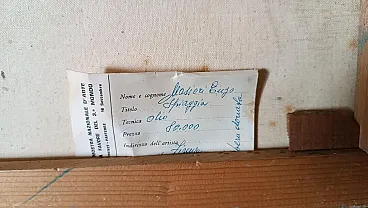 MOSTRA NAZIONALE D'ARTE
A FAVORE DEL 3.º MONDO
Settembre
Nome e cognome Masieri Enzo
Titolo Spiaggia
Tecnica olio
Prezzo 80.000
Indirizzo dell'artista Firenze